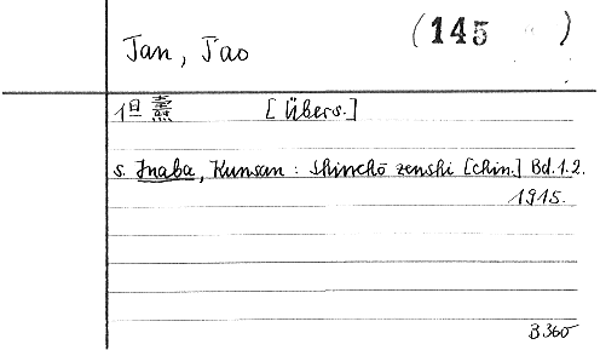 (145 )
Tan, Tao
但燾 [Übers.]
s. Inaba, Kunsan: Shinchō zenshi [chin.] Bd.1.2.
1915.
B360